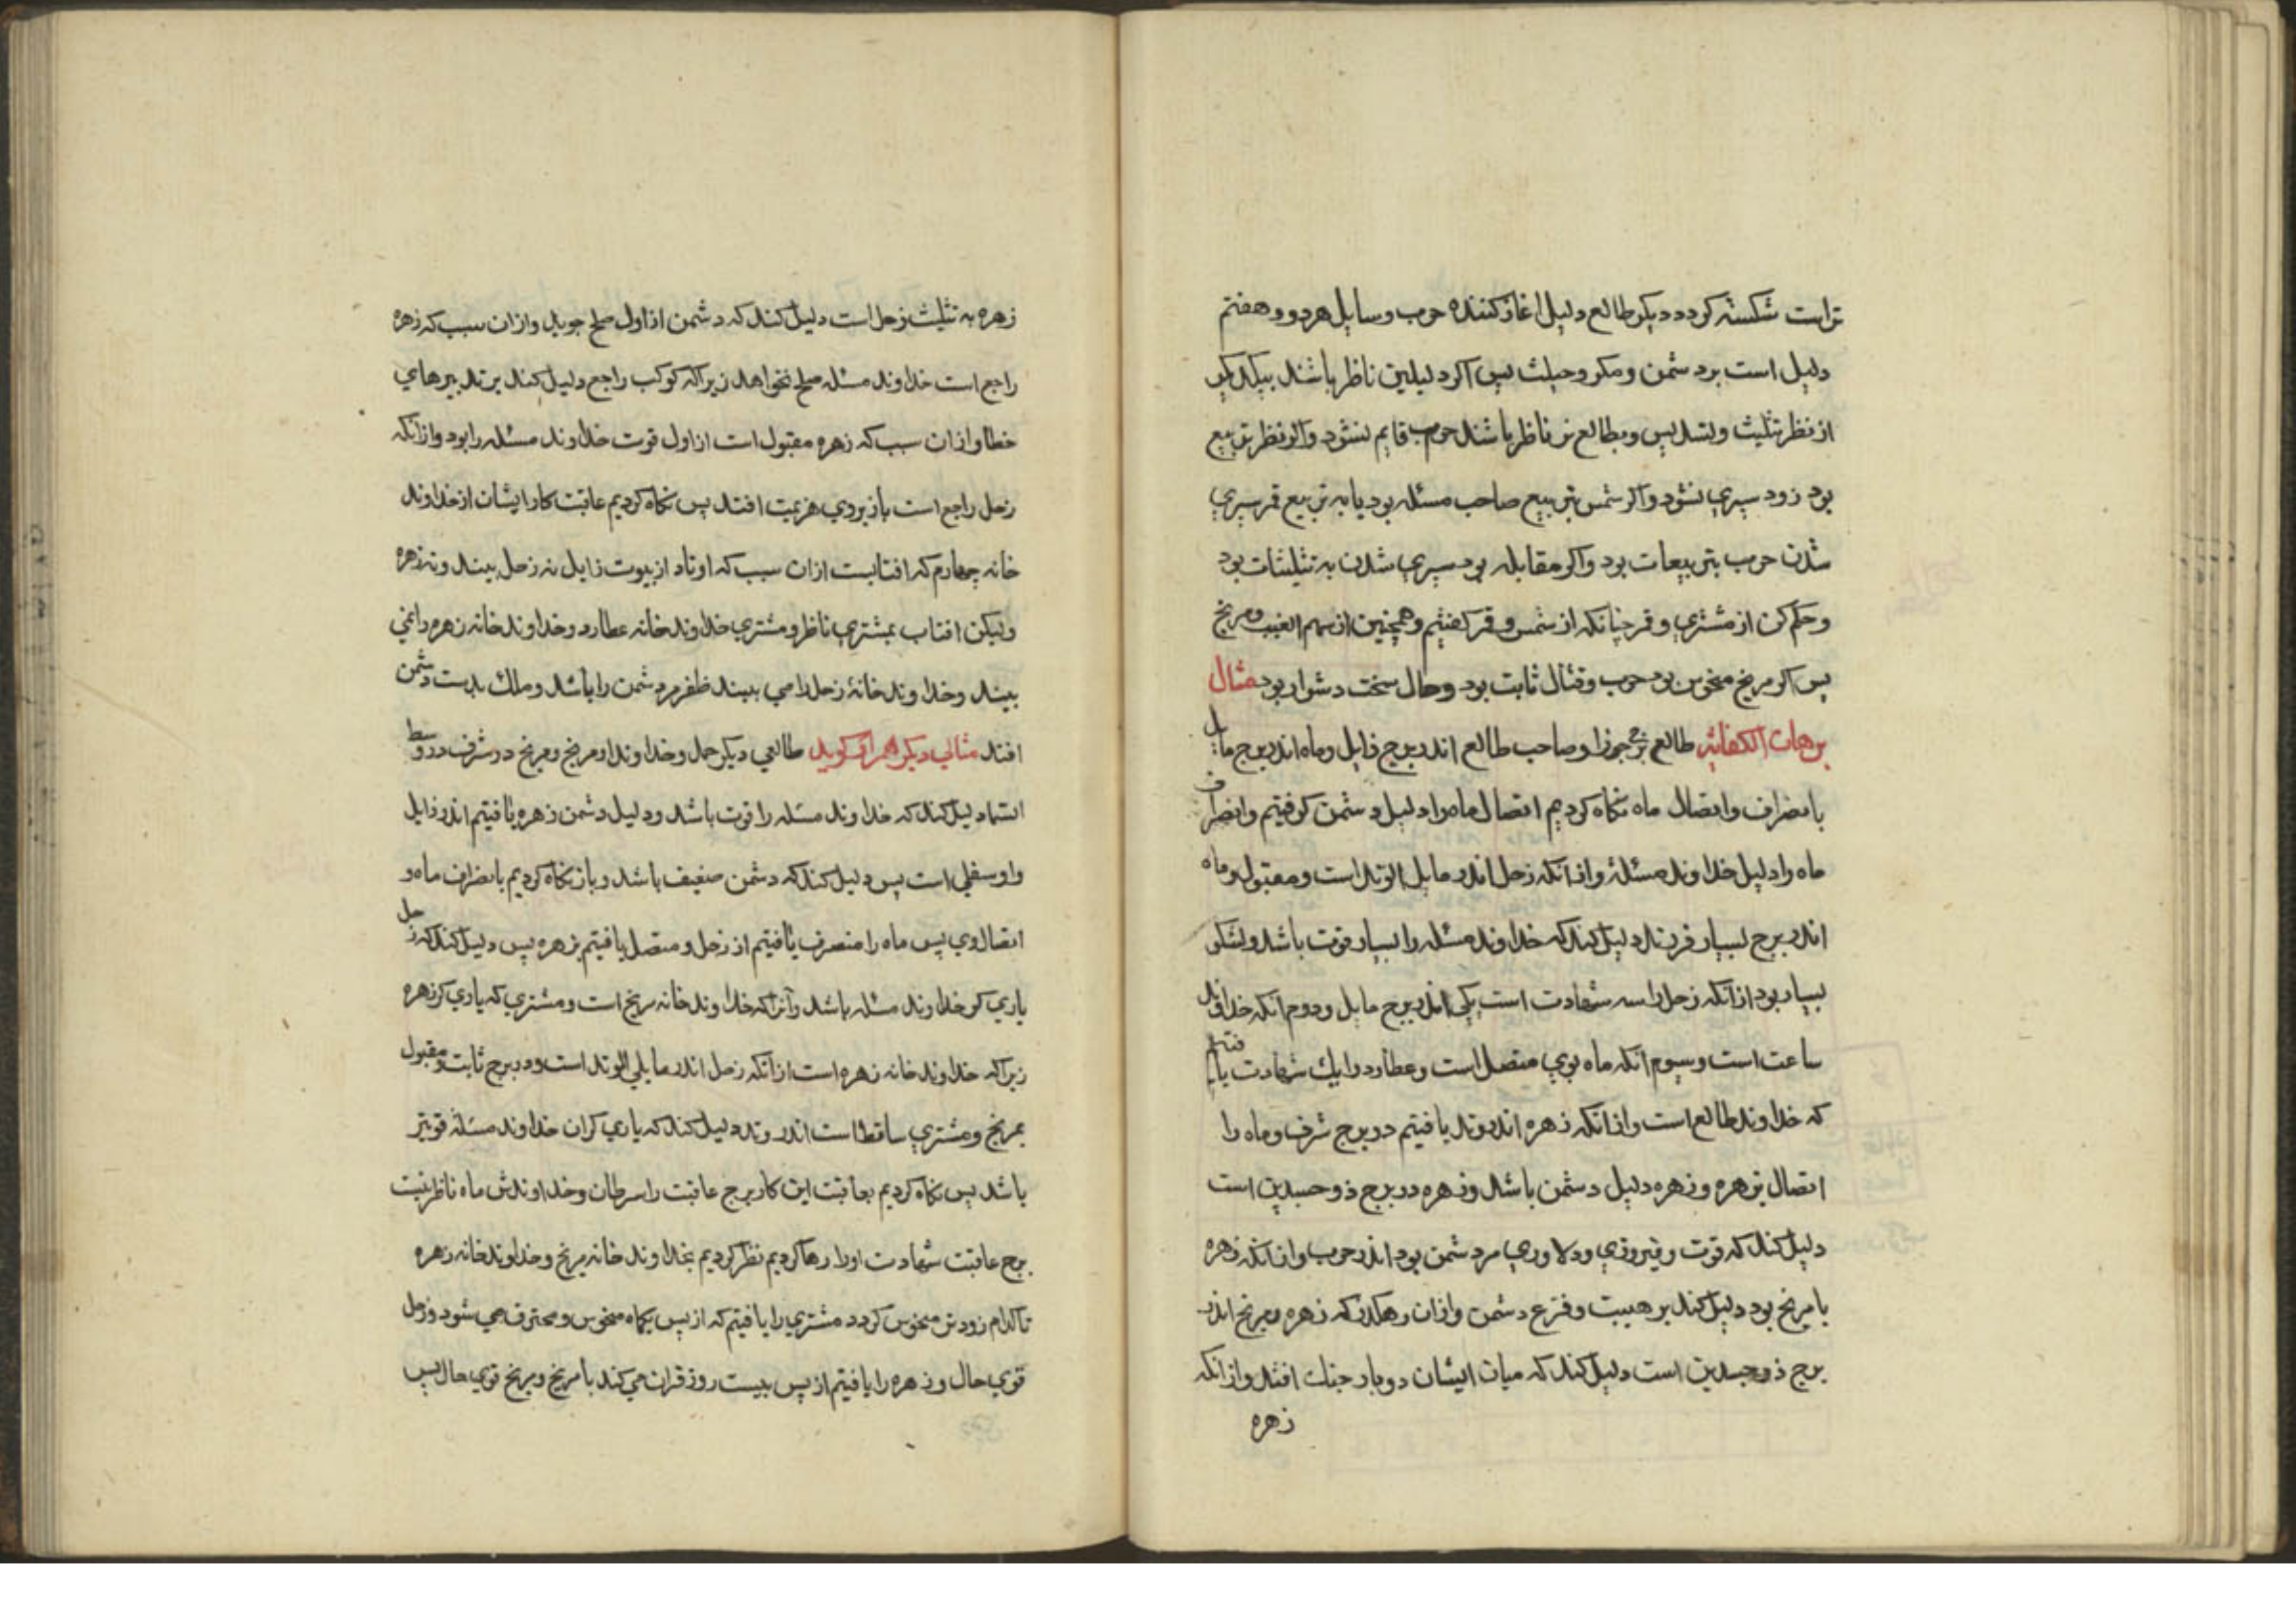 تراست شکسته کردد دیکر طالع دلیل اغاز کننده حرب و سایل هر دو و هفتم
دلیل است بر دشمن و مکر و حیلت پس اکر دلیلین ناظر باشند بیکدیکر
از نظر تثلیث و تسدیس و بطالع نیز ناظر باشند حرب قایم نشود و اکر نظر تربیع
بود زود سپری نشود و اکر شمس بتربیع صاحب مسئله بود یا به تربیع قمر سپری
شدن حرب بتربیعات بود و اکر مقابله بود سپری شدن به تثلیثات بود
و حکم کن از مشتری و قمر چنانکه از شمس و قمر کفتیم و همچنین از سهم الغیب و مریخ
پس اکر مریخ منحوس بود حرب و قتال ثابت بود و حال سخت دشوار بود مثال
برهان الکفایه طالع برج جوزا و صاحب طالع اندر برج زایل و ماه اندر برج مایل
بانصراف و اتصال ماه نکاه کردیم اتصال ماه را دلیل دشمن کرفتیم و انصراف
ماه را دلیل خداوند مسئله و از آنکه زحل اندر مایل الوتد است و مقبول و ماه
اندر برج بسیار فرزند دلیل کند که خداوند مسئله را بسیار قوت باشد و لشکر
بسیار بود از آنکه زحل را سه شهادت است یکی اندر برج مایل و دوم آنکه خداوند
ساعت است و سیوم آنکه ماه بوی متصل است و عطارد را یک شهادت یافتیم
که خداوند طالع است و از انکه زهره اندر وتد یافتیم در برج شرف و ماه را
اتصال بزهره و زهره دلیل دشمن باشد و زهره در برج ذو جسدین است
دلیل کند که قوت و فیروزی و دلاوری مر دشمن بود اندر حرب و از آنکه زهره
با مریخ بود دلیل کند بر هیبت و فزع دشمن و ازان رهکذر که زهره و مریخ اندر
برج ذو جسدین است دلیل کند که میان ایشان دو بار جنک افتد و از انکه
زهره
زهره به تثلیث زحل است دلیل کند که دشمن از اول صلح جوید و ازان سبب که زهره
راجع است خداوند مسئله صلح نخواهد زیرا که کوکب راجع دلیل کند بر تدبیرهای
خطا و ازان سبب که زهره مقبول است از اول قوت خداوند مسئله را بود و از آنکه
زحل راجع است باز بروی هزیمت افتد پس نکاه کردیم عاقبت کار ایشان از خداوند
خانه چهارم که افتابست ازان سبب که اوتاد از بیوت زایل نه زحل بیند و نه زهره
ولیکن افتاب بمشتری ناظر و مشتری خداوند خانه عطارد و خداوند خانه زهره را نمی
بیند و خداوند خانهٔ زحل را می بیند ظفر مر دشمن را باشد و ملک بدست دشمن
افتد مثالی دیکر هم او کوید طالعی دیکر حمل و خداوند او مریخ و مریخ در شرف در وسط
السما دلیل کند که خداوند مسئله را قوت باشد و دلیل دشمن زهره یافتیم اندر زایل
و او سفلی است پس دلیل کند که دشمن ضعیف باشد و باز نکاه کردیم بانصراف ماه و
اتصال وی پس ماه را منصرف یافتیم از زحل و متصل یافتیم بزهره پس دلیل کند که زحل
یاری کر خداوند مسئله باشد و آنرا که خداوند خانه مریخ است و مشتری که یاری کر زهره
زیرا که خداوند خانه زهره است از آنکه زحل اندر مایلی الوتد است و در برج ثابت و مقبول
بمریخ و مشتری ساقط است اندر وتد دلیل کند که یاری کران خداوند مسئله قویتر
باشد پس نکاه کردیم بعاقبت این کار برج عاقبت را سرطان و خداوندش ماه ناظر نیست
برج عاقبت شهادت او را رها کردیم نظر کردیم بخداوند خانه مریخ و خداوند خانه زهره
تا کدام زودتر منحوس کردد مشتری را یافتیم که از پس یکماه منحوس و محترق می شود و زحل
قوی حال و زهره را یافتیم از پس بیست روز قران می کند با مریخ و مریخ قوی حال پس